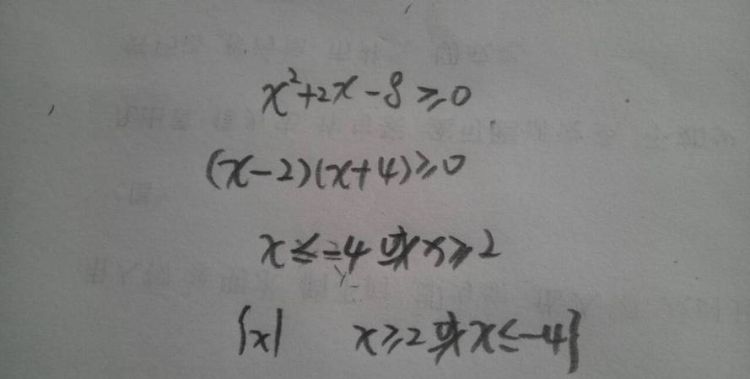 x²+2x-8≥0
(x-2)(x+4)≥0
x≤-4或x≥2
{x| x≥2或x≤-4}